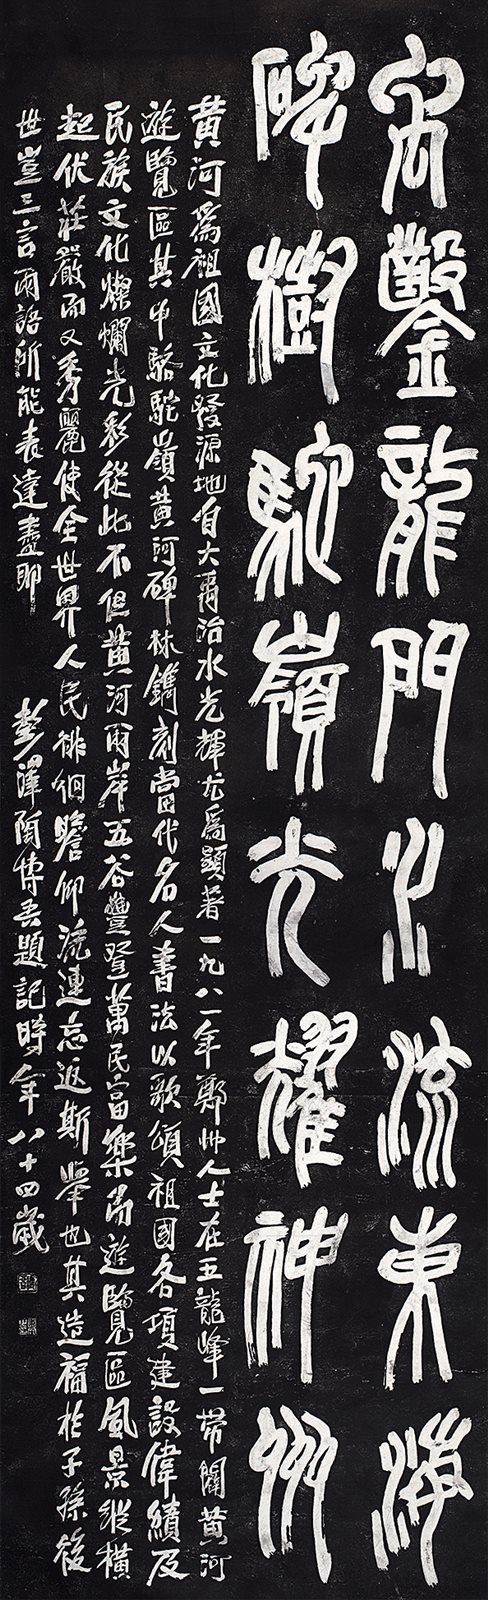 禹鑿龍門水流東海
碑樹駝嶺光耀神州
黃河爲祖國文化發源地自大禹治水光輝尤爲顯著一九八一年鄭州人士在五龍峰一帶闢黃河
遊覽區其中駱駝嶺黃河碑林鐫刻當代名人書法以歌頌祖國各項建設偉績及
民族文化燦爛光彩從此不但黃河兩岸五谷豐登萬民富樂而遊覽區風景縱橫
起伏莊嚴而又秀麗使全世界人民徘徊瞻仰流連忘返斯舉也其造福於子孫後
世豈三言兩語所能表達盡耶
彭澤陶博吾題記時年八十四歲